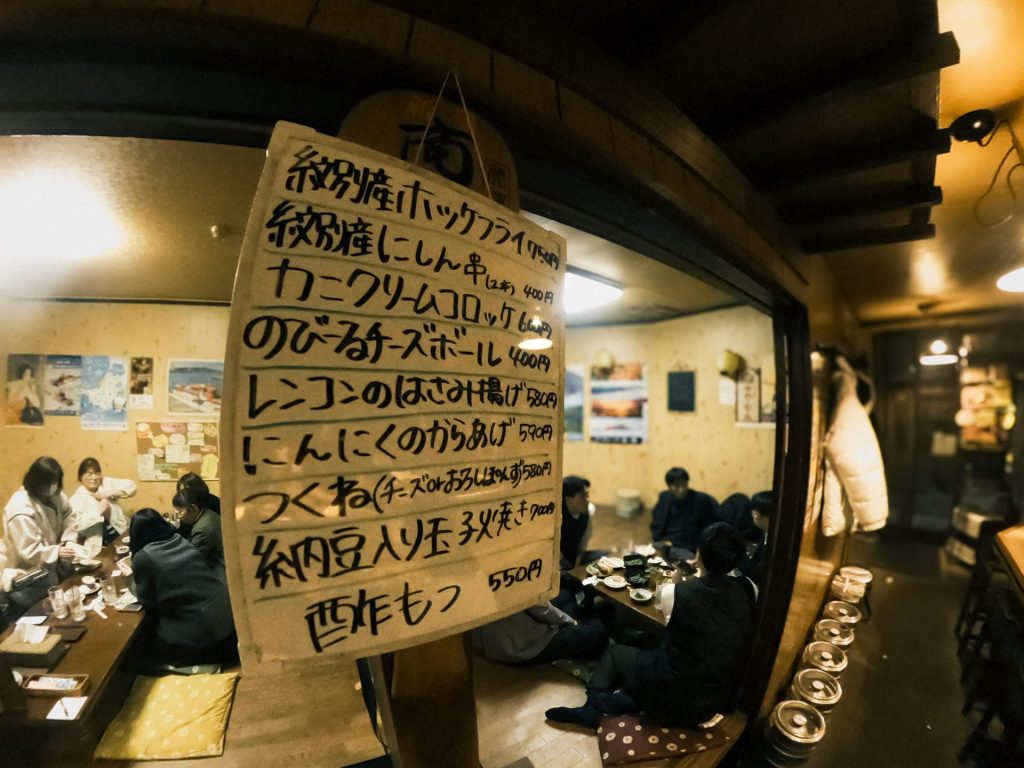 南
紋別産ホッケフライ 750円
紋別産にしん串(2本) 400円
カニクリームコロッケ 600円
のびーるチーズボール 400円
レンコンのはさみ揚げ 580円
にんにくのからあげ 590円
つくね(チーズorおろしぽんず) 580円
納豆入り玉子火焼き 700円
酢もつ 550円